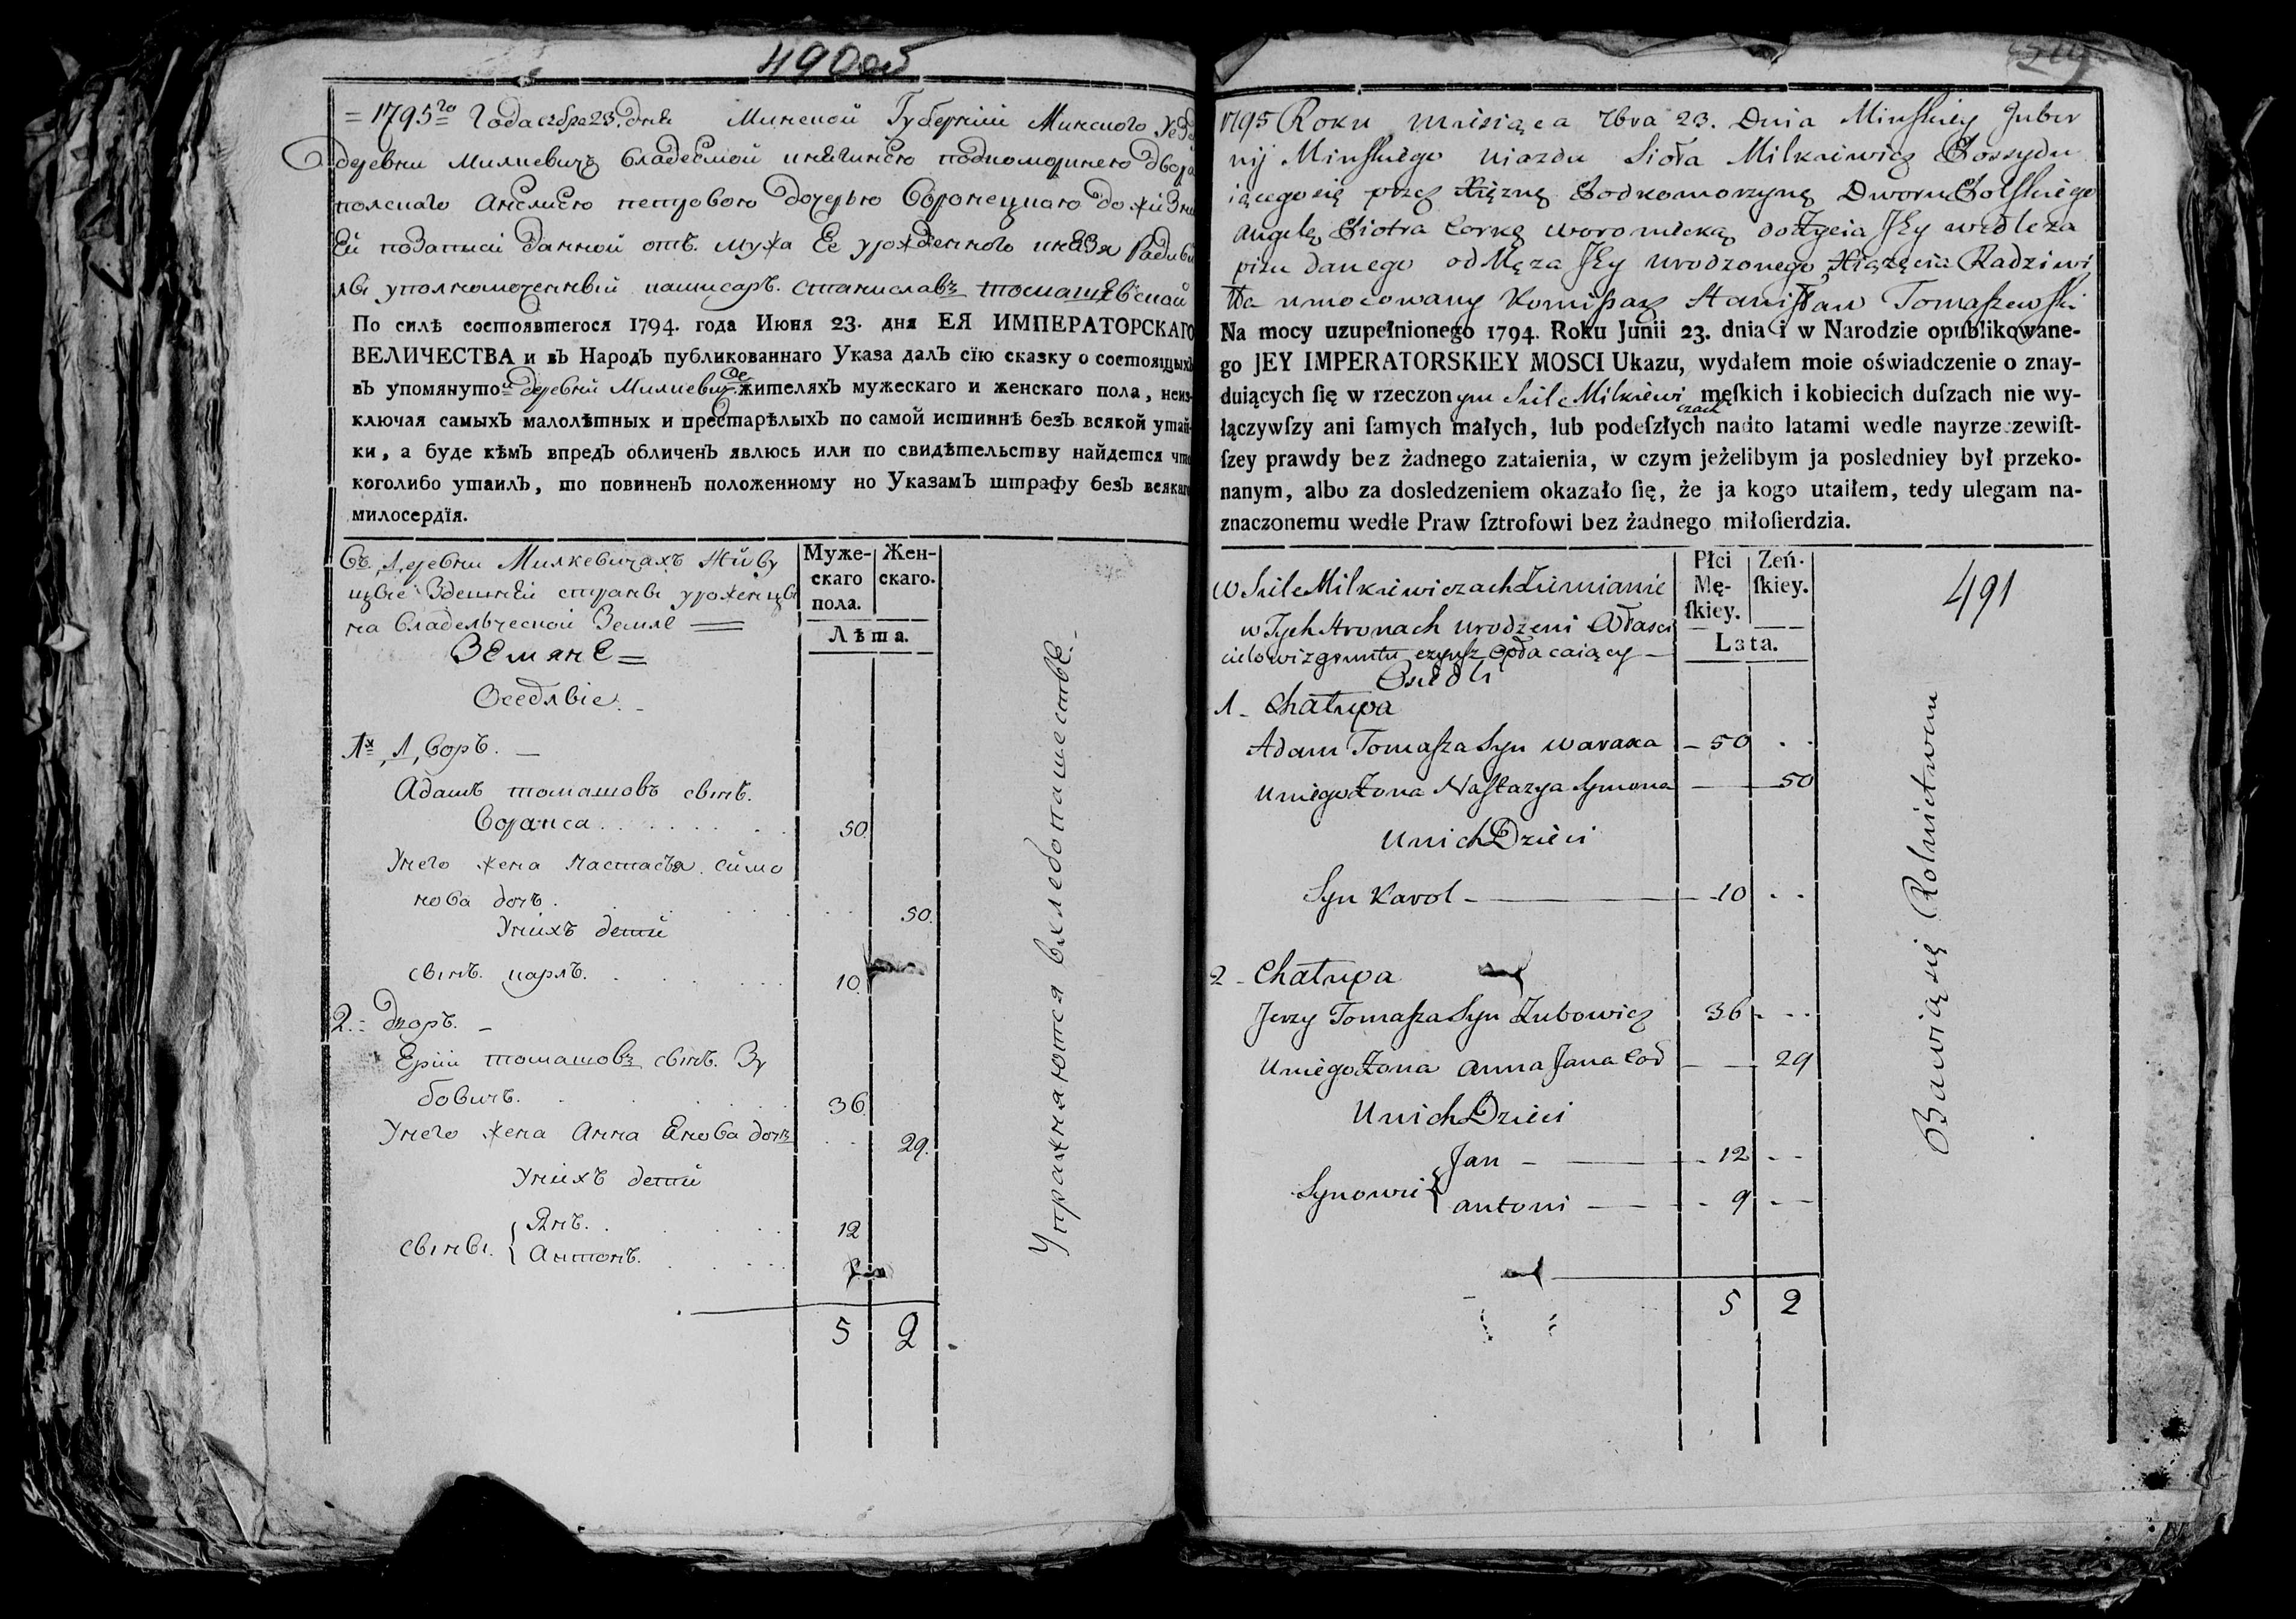 490об
= 1795го Года себра 23. дня Минской Губернии Минского уезда
деревни Милкевичъ владеемой княгинею подкоморинею двора
полскаго Анелиею петровою дочерью Воронецкаго до жизни
Ей по записи данной отъ мужа Ее урожденного князя Радиви
лы уполномоченный камисаръ станиславъ томашевской
По силѣ состоявшегося 1794. года Июня 23. дня ЕЯ ИМПЕРАТОРСКАГО
ВЕЛИЧЕСТВА и въ НародЪ публикованнаго Указа далЪ сїю сказку о состоящыхъ
въ упомянутой деревни Милкевичъ жителяхЪ мужескаго и женскаго пола, неиз-
ключая самыхЪ малолѣтных и престарѣлыхЪ по самой истиннѣ безЪ всякой утай-
ки, а буде кѣмЪ впредЪ обличенЪ явлюсь или по свидѣтельству найдется что
коголибо утаилЪ, то повиненЪ положенному по УказамЪ штрафу безЪ всякаго
милосердїя.
Въ деревни Милкевичахъ Живу
щые здешней страны уроженцы
на владельческой Земле
Муже-
скаго
пола.
Жен-
скаго.
Лѣта.
Земяне =
Оседлые.
1х дворъ.
Адамъ томашовъ сынъ
Воракса 50.
У него жена настасъя симо
нова дочъ 50.
У нихъ дети
сынъ карлъ. 10.
2. = дворъ.
Ерии томашовъ сынъ Зу
бовичъ. 36.
У него жена Анна Енова дочъ 29.
У нихъ дети
сыны { Янъ. 12
Антонъ.
5 2
Упражняются вхлебопашестве.
1795 Roku miesiąca 7bra 23. Dnia Minskiey Guber
nij Minskiego Ujazdu Sioła Milkiewicz Possydu
iącego się przez Xiężnę Podkomorzynę Dworu Polskiego
Angelę Piotra Corkę Woroniecką do Życia JEy wedle za
pisu danego od Męża JEy urodzonego Xiążęcia Radziwi
łła umocowany Komisarz Stanisław Tomaszewski
Na mocy uzupełnionego 1794. Roku Junii 23. dnia i w Narodzie opublikowane-
go JEY IMPERATORSKIEY MOSCI Ukazu, wydałem moie oświadczenie o znay-
duiących ſię w rzeczonym Siele Milkiewiczach męſkich i kobiecich duſzach nie wy-
łączywſzy ani ſamych małych, lub podeſzłych nadto latami wedle nayrzeczewiſt-
ſzey prawdy bez żadnego zataienia, w czym jeżelibym ja posledniey był przeko-
nanym, albo za dosledzeniem okazało ſię, że ja kogo utaiłem, tedy ulegam na-
znaczonemu wedle Praw ſztrofowi bez żadnego miłoſierdzia.
w Siele Milkiewiczach Ziemianie
w Tych stronach urodzeni Własci
cielowi z gruntu czynsz opłacaiący
Osiedli
Płci
Mę-
ſkiey.
Zeń-
ſkiey.
Lata.
491
1 - Chałupa
Adam Tomasza Syn Waraxa - 50
U niego Żona Nastazya Symona 50
U nich Dzieci
Syn Karol - 10
2 - Chałupa
Jerzy Tomasza Syn Zubowicz 36
U niego Żona Anna Jana Cor 29
U nich Dzieci
Synowie { Jan - 12
Antoni - 9
5 2
Bawią się Rolnictwem